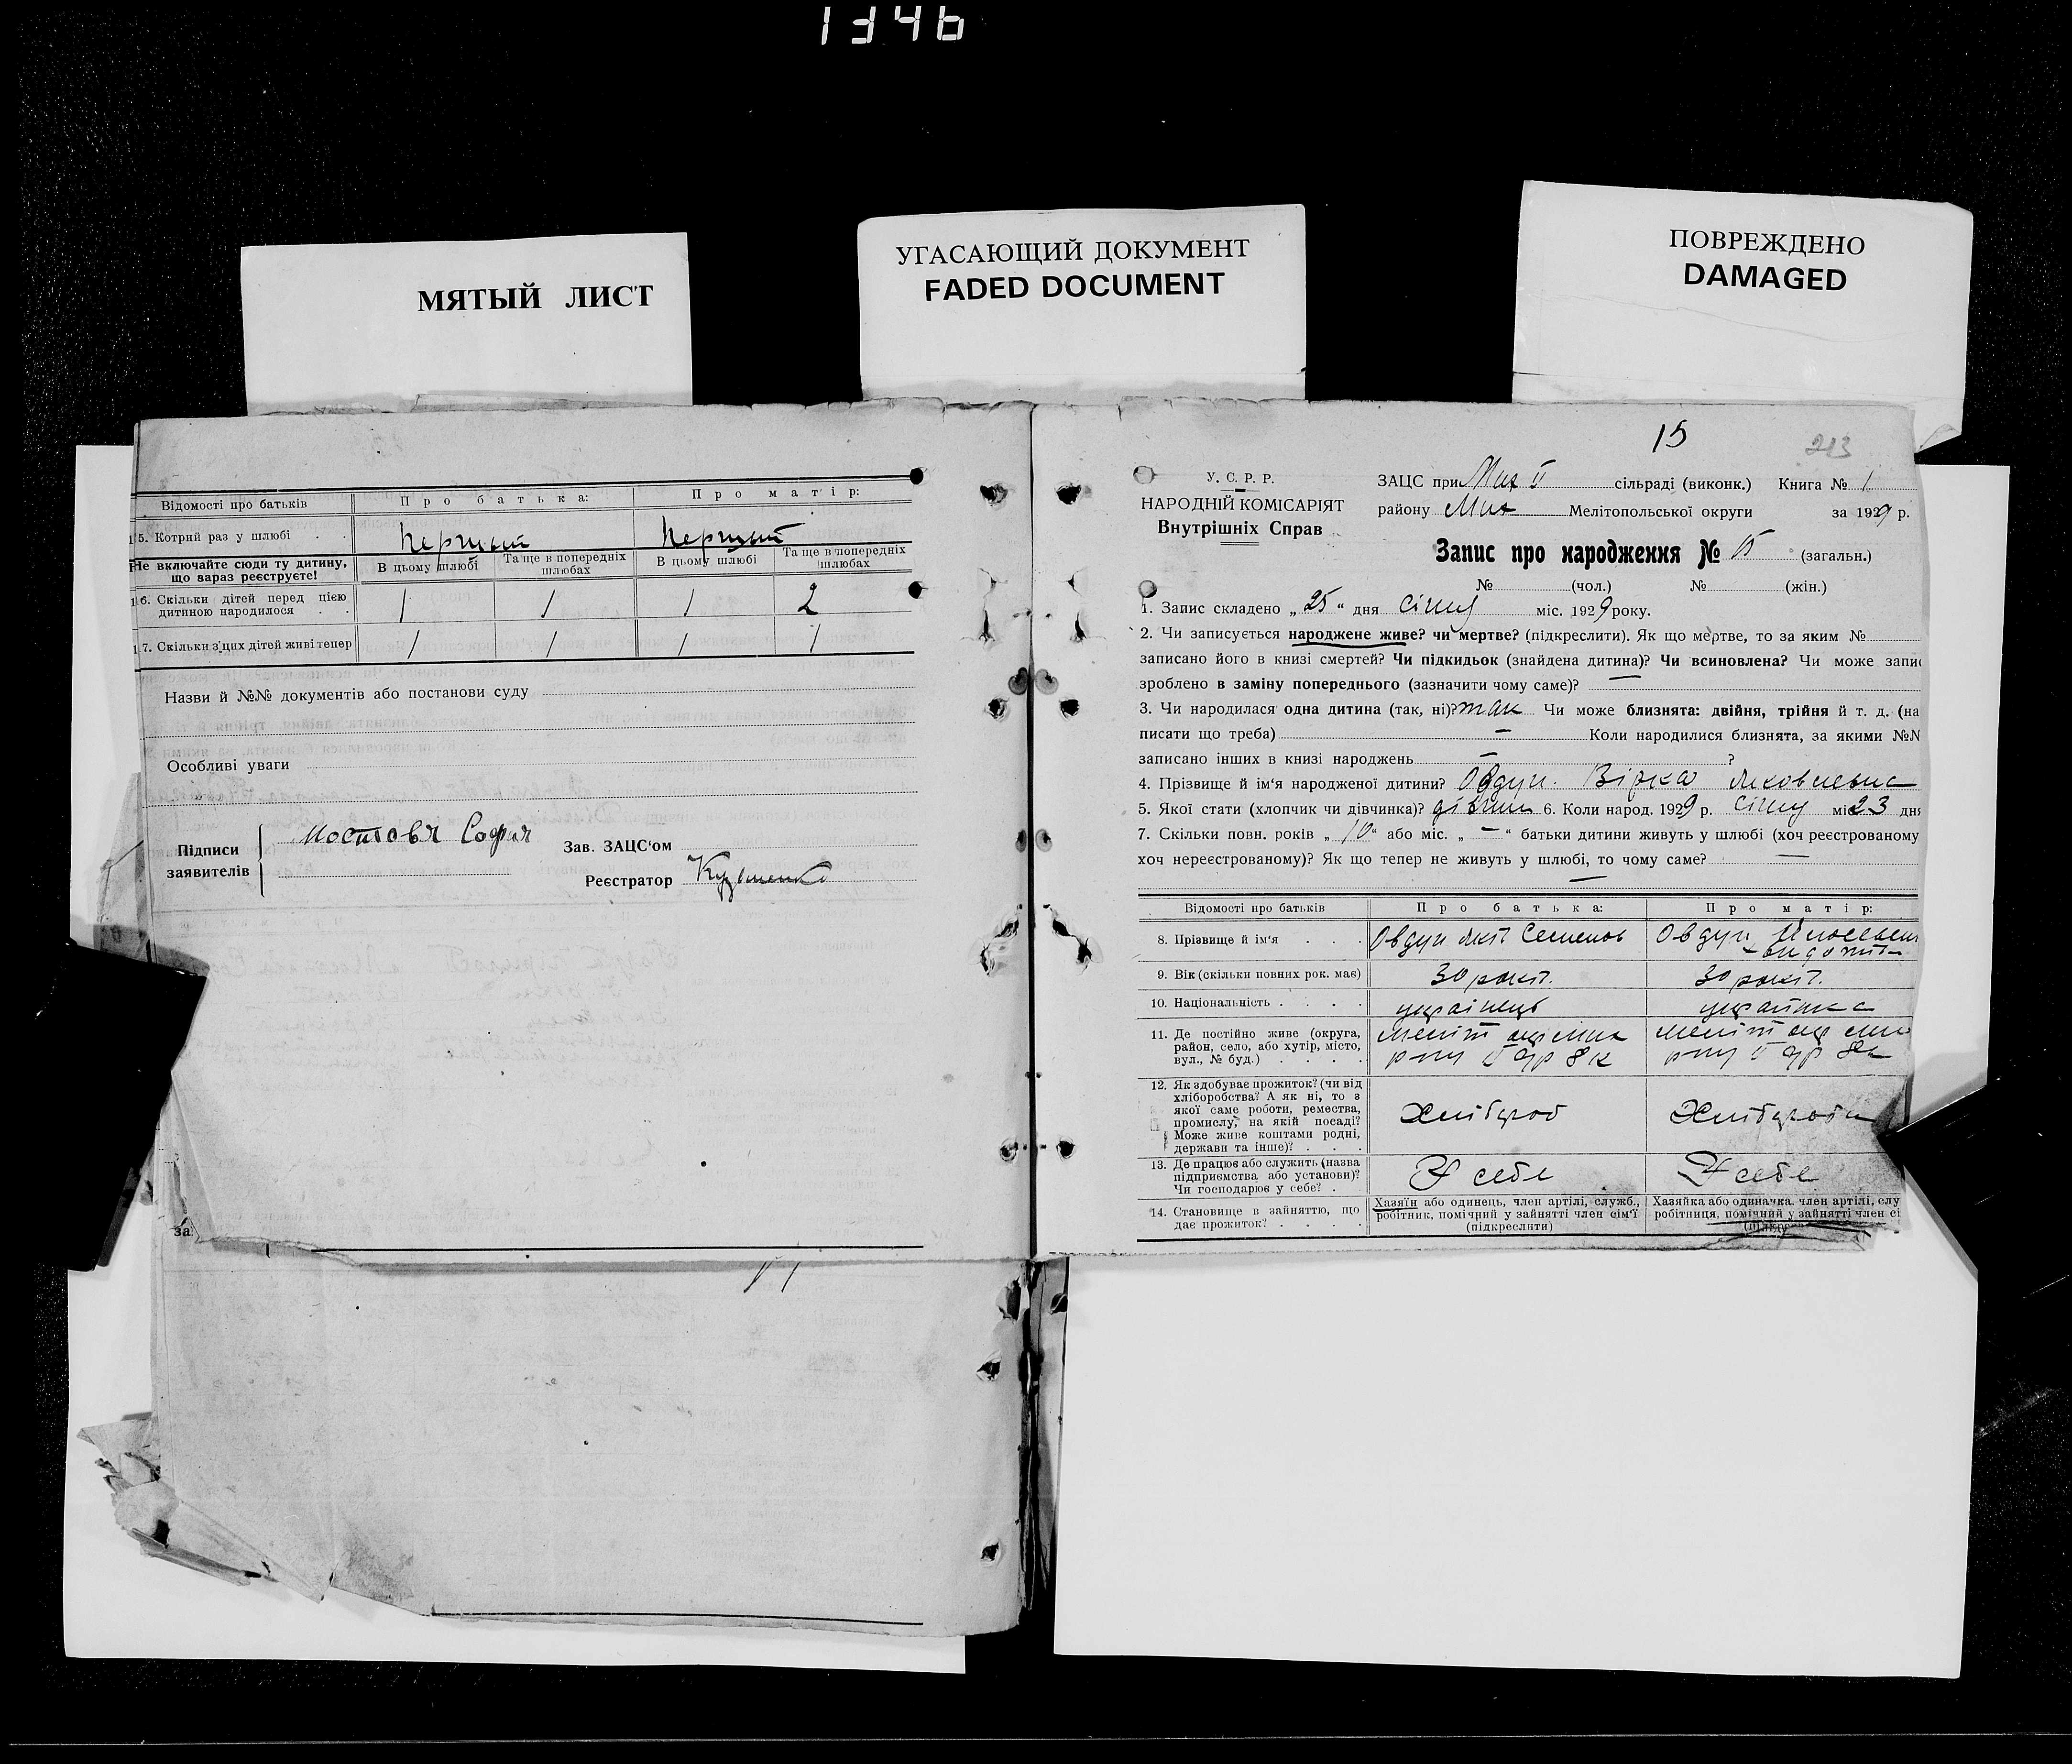 1346
МЯТЫЙ ЛИСТ
УГАСАЮЩИЙ ДОКУМЕНТ
FADED DOCUMENT
ПОВРЕЖДЕНО
DAMAGED
Відомості про батьків
Про батька:
Про матір:
15. Котрий раз у шлюбі
Не включайте сюди ту дитину, що вараз реєструєте!
В цьому шлюбі
Та ще в попередніх шлюбах
В цьому шлюбі
Та ще в попередніх шлюбах
16. Скільки дітей перед цією дитиною народилося
1 1 1 2
17. Скільки з цих дітей живі тепер
1 1 1 1
Назви й №№ документів або постанови суду
Особливі уваги
Підписи заявителів
Мостовя Софія
Зав. ЗАЦС'ом
Реєстратор Кузьменко
за
15
213
У. С. Р. Р.
НАРОДНІЙ КОМІСАРІЯТ
Внутрішніх Справ
ЗАЦС при Мих V сільраді (виконк.) Книга № 1
району Мих Мелітопольської округи за 1929 р.
Запис про народження № 15 (загальн.)
№ (чол.) № (жін.)
1. Запис складено „25“ дня січня міс. 1929 року.
2. Чи записується народжене живе? чи мертве? (підкреслити). Як що мертве, то за яким №
записано його в книзі смертей? Чи підкидьок (знайдена дитина)? Чи всиновлена? Чи може запис
зроблено в заміну попереднього (зазначити чому саме)? —
3. Чи народилася одна дитина (так, ні)? так Чи може близнята: двійня, трійня й т. д. (на
писати що треба) — Коли народилися близнята, за якими №№
записано інших в книзі народжень — ?
4. Прізвище й ім'я народженої дитини? Овдун. Вірка Яковлевна
5. Якої стати (хлопчик чи дівчинка)? дівчин 6. Коли народ. 1929 р. січня міс 23 дня
7. Скільки повн. років „10“ або міс. „—“ батьки дитини живуть у шлюбі (хоч реєстрованому
хоч нереєстрованому)? Як що тепер не живуть у шлюбі, то чому саме? —
—
Відомості про батьків
Про батька:
Про матір:
8. Прізвище й ім'я
Овдун Якіп Семенов
Овдун
9. Вік (скільки повних рок. має)
30 років.
30 років.
10. Національність
українець
українка
11. Де постійно живе (округа, район, село, або хутір, місто, вул., № буд.)
Меліт окр Мих
р-ну V 8к
Меліт окр Мих
р-ну V 8к
12. Як здобуває прожиток? (чи від хліборобства? А як ні, то з якої саме роботи, ремества, промислу, на якій посаді? Може живе коштами родні, держави та інше)?
Хлібороб
Хлібороби
13. Де працює або служить (назва підприємства або установи)? Чи господарює у себе?
У себе
У себе
14. Становище в зайняттю, що дає прожиток?
Хазяїн або одинець, член артілі, служб., робітник, помічний у зайнятті член сім'ї (підкреслити)
Хазяйка або одиначка, член артілі, слу робітниця, помічний у зайнятті член сі